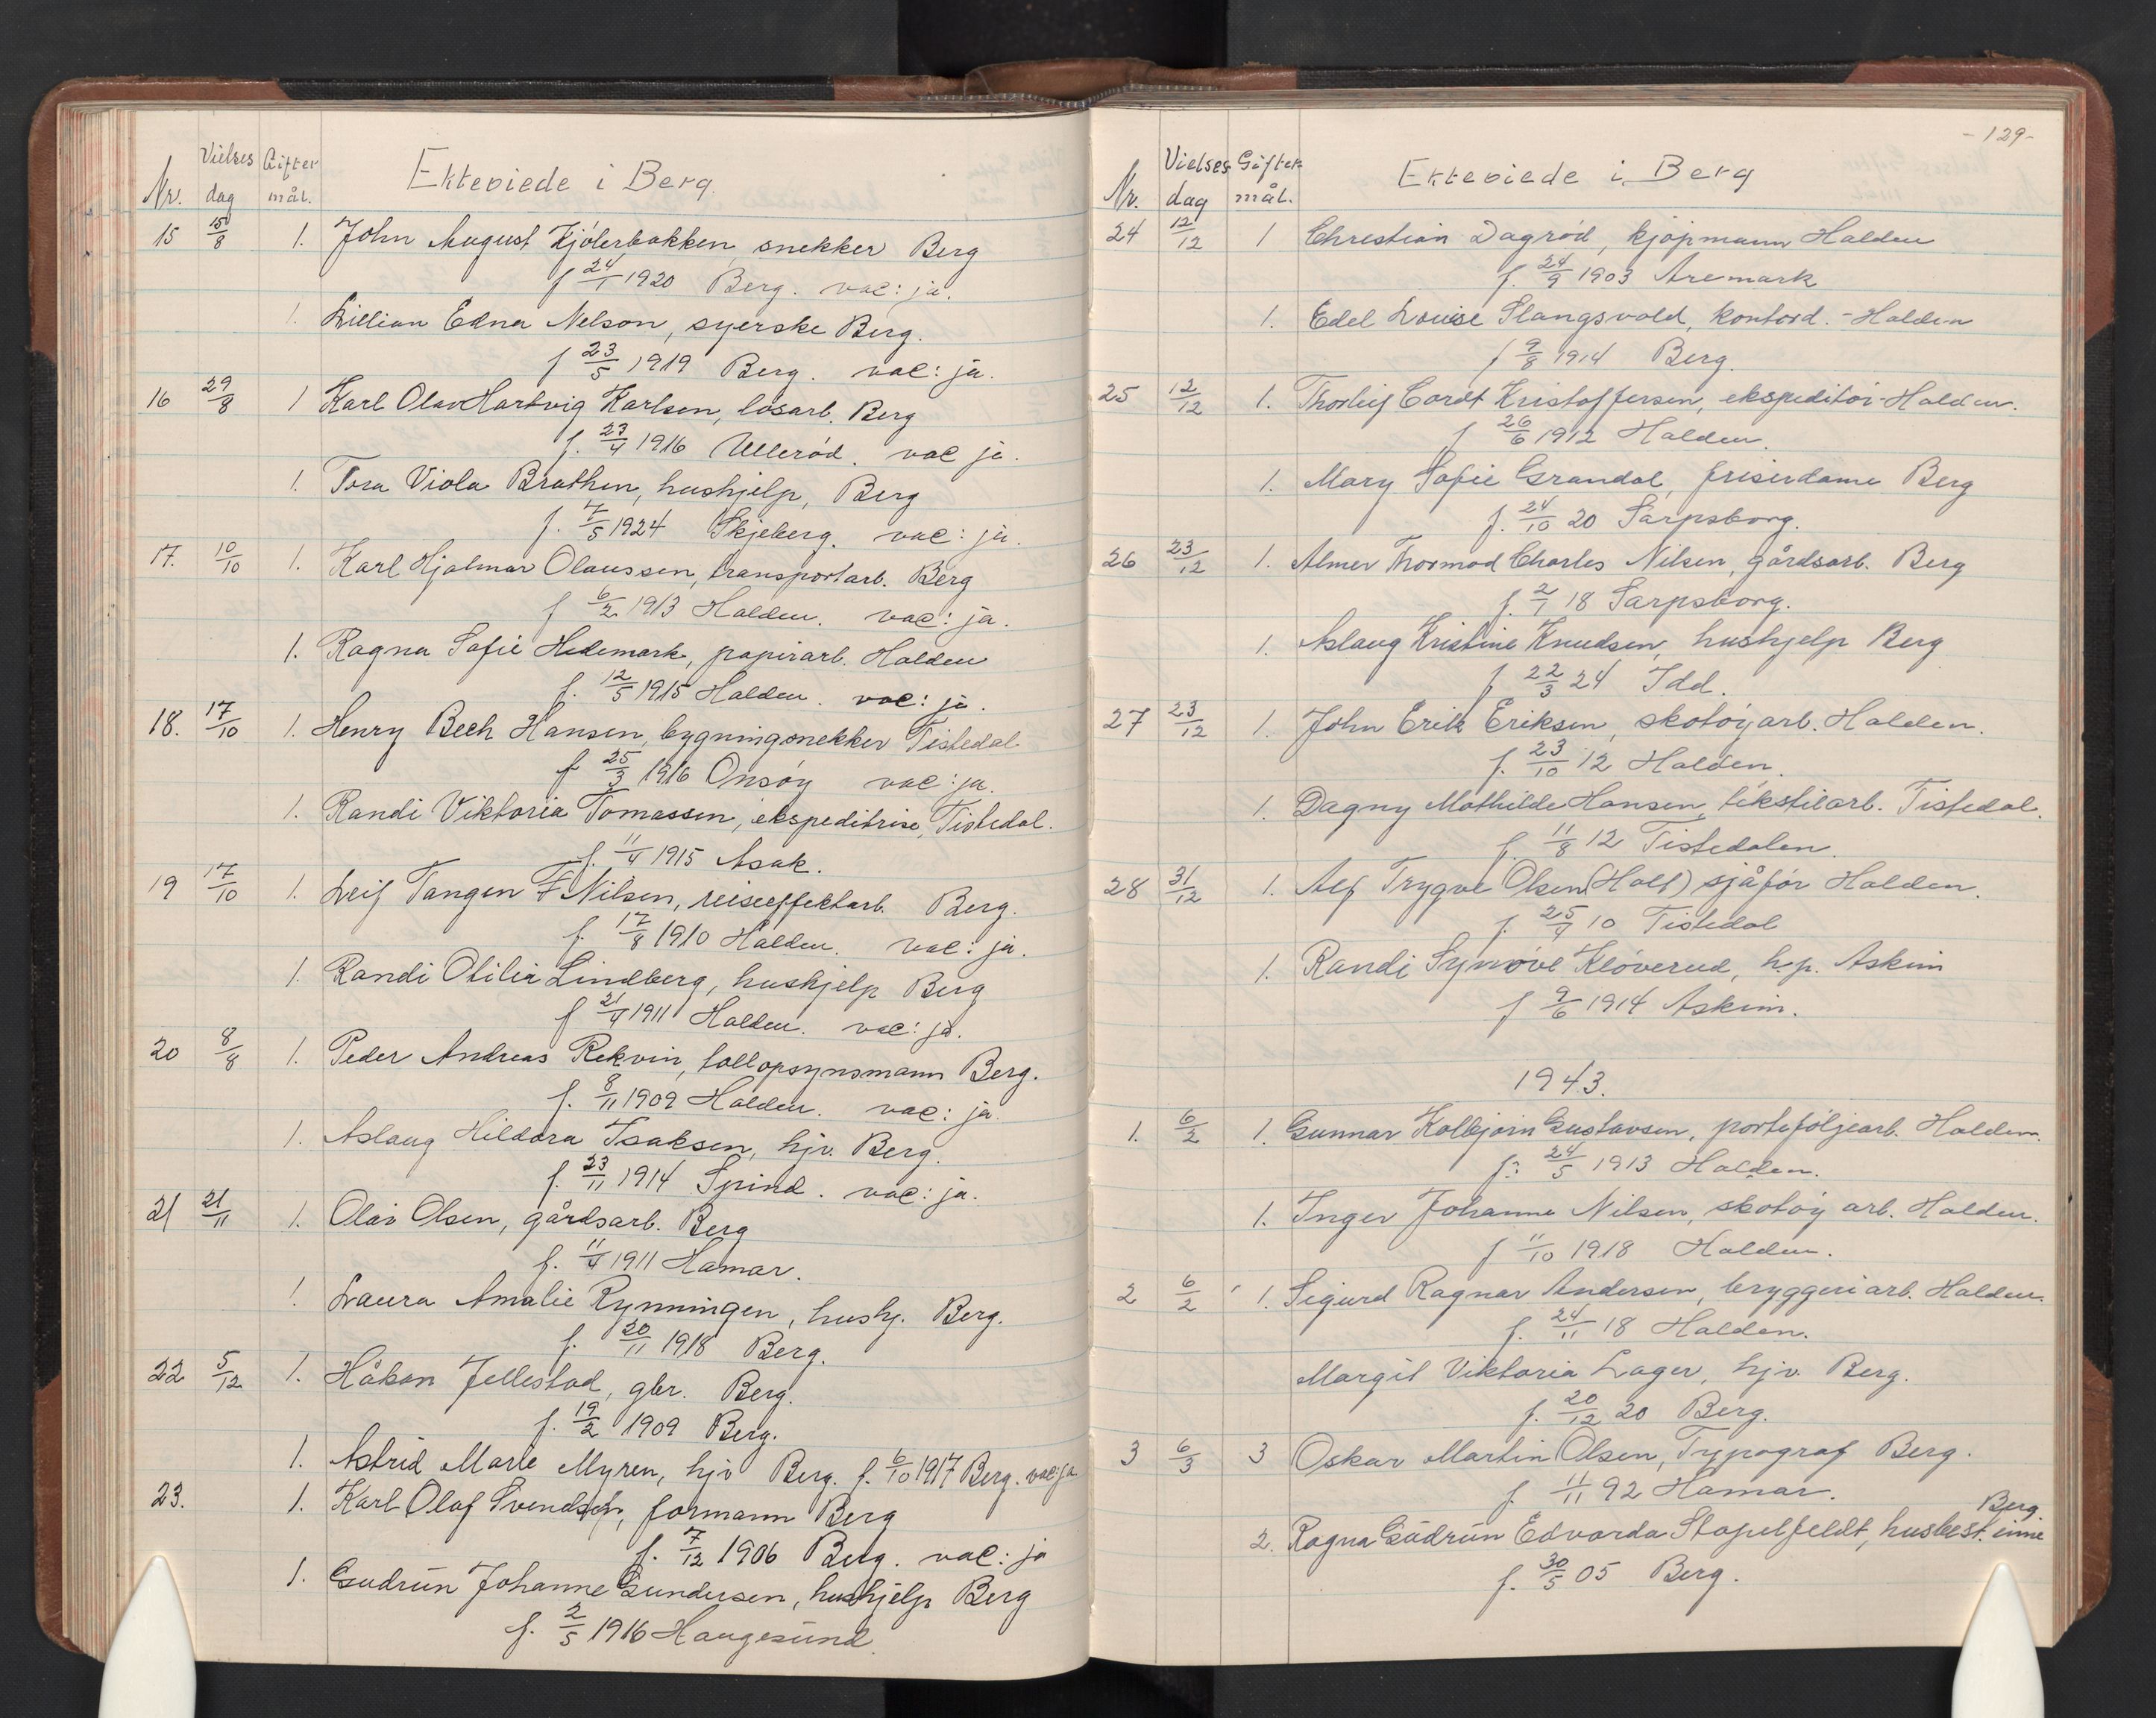 Nr. Vielses dag Gifter mål. Ektevიede i Berg.
15 15/8 1. John August Kjölerbakken, snekker Berg
f 24/1 1920 Berg. vac: ja.
1. Lillian Edna Nelson, syerske Berg.
f 23/5 1919 Berg. vac: ja.
16 29/8 1 Karl Olav Hartvig Karlsen, løsarb. Berg
f. 23/4 1916 Ullerød. vac ja.
1. Tora Viola Bråthen, hushjelp, Berg
f. 7/5 1924 Skjeberg. vac: ja.
17. 10/10 1. Karl Hjalmar Olaussen, transportarb. Berg
f 6/2 1913 Halden. vac: ja.
1. Ragna Sofie Hedemark, papirarb. Halden
f. 12/5 1915 Halden. vac: ja.
18. 17/10 1. Henry Bech Hansen, bygningsnekker Tistedal
f 25/3 1916 Onsøy vac: ja.
1. Randi Viktoria Tomassen, ekspeditrise, Tistedal.
f. 11/4 1915 Asak.
19 17/10 1. Leif Tangen F Nilsen, reiseeffektarb. Berg.
f. 17/8 1910 Halden. vac: ja.
1. Randi Otilia Lindberg, hushjelp Berg
f 21/4 1911 Halden. vac: ja.
20 8/8 1. Peder Andreas Rekvin, tollopsynsmann Berg.
f. 8/11 1909 Halden. vac: ja
1. Aslaug Hildora Isaksen, hjv. Berg.
f. 23/11 1914 Spind. vac: ja.
21 21/11 1. Olav Olsen, gårdsarb. Berg
f. 11/4 1911 Hamar.
1. Laura Amalie Rynningen, hushj. Berg.
f. 20/11 1918 Berg.
22 5/12 1. Håkon Jellestad, gbr. Berg.
f. 19/2 1909 Berg.
1. Astrid Marie Myren, hjv Berg. f. 6/10 1917 Berg. vac: ja
23. 1. Karl Olaf Svendsen, formann Berg
f. 7/12 1906 Berg. vac: ja
1. Gudrün Johanne Gundersen, hushjelp Berg
f. 2/5 1916 Haugesünd.
- 129 -
Nr. Vielses dag Gifter mål. Ekteviede i Berg
24 12/12 1 Christian Dagrød, kjøpmann Halden
f. 24/9 1903 Aremark
1. Edel Louise Slangsvold, kontord. - Halden
f 9/8 1914 Berg.
25 12/12 1. Thorleif Cordt Kristoffersen, ekspeditør - Halden.
f 26/6 1912 Halden.
1. Mary Sofie Grandal, friserdame Berg
f. 24/10 20 Sarpsborg.
26 23/12 1. Almer Thormod Charles Nilsen, gårdsarb. Berg
f. 2/1 18 Sarpsborg.
1. Aslaug Kristine Knudsen, hushjelp Berg
f 22/3 24 Idd.
27 23/12 1. John Erik Eriksen, skotøyarb. Halden.
f. 23/10 12 Halden.
1. Dagny Mathilde Hansen, tekstilarb. Tistedal.
f. 11/8 12 Tistedalen.
28 31/12 1. Alf Trygve Olsen (Holt) sjåfør Halden.
f. 25/4 10 Tistedal
1. Randi Synøve Kløverud, h.p. Askim
f 9/6 1914 Askim.
1943.
1. 6/2 1. Gunnar Kolbjørn Gustavsen, porteføljearb. Halden.
f: 24/5 1913 Halden.
1. Inger Johanne Nilsen, skotøy arb. Halden.
f 11/10 1918 Halden.
2 6/2 1. Sigurd Ragnar Andersen, bryggeriarb. Halden.
f. 24/11 18 Halden.
Margit Viktoria Lager, hjv. Berg.
f. 20/12 20 Berg.
3 6/3 3 Oskar Martin Olsen, Typograf Berg.
f. 11/11 92 Hamar.
2. Ragna Güdrün Edvarda Stapelfeldt, husbest.inne Berg.
f. 30/5 05 Berg.